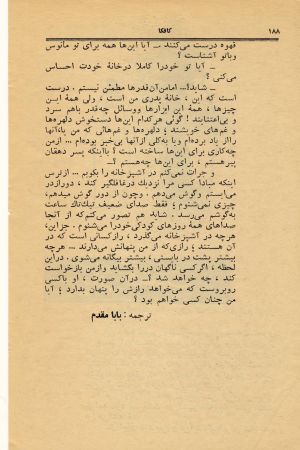 ۱۸۸ کافکا
قهوه درست می‌کنند ــ آیا این‌ها همه برای تو مأنوس
و با تو آشناست ؟
ــ آیا تو خود را کاملا در خانهٔ خودت احساس
می‌کنی ؟
ــ شاید!... اما من آن‌قدرها مطمئن نیستم . درست
است که این ، خانهٔ پدری من است ، ولی همهٔ این
چیزها ، همهٔ این ابزارها و وسائل چه‌قدر باهم سرد
و بی‌اعتنایند ! گوئی هرکدام این‌ها دستخوش دلهره‌ها
و غم‌های خویشند ؛ دلهره‌ها و غم‌هائی که من یا آنها
را از یاد برده‌ام و یا به‌کلی از آنها بی‌خبر بوده‌ام ... از من
چه کاری برای این‌ها ساخته است ؟ با اینکه پسر دهقان
پیر هستم ، برای این‌ها چه هستم ؟...
و جرأت نمی‌کنم در آشپزخانه را بکوبم ... از ترس
اینکه مبادا کسی مرا نزدیک در غافلگیر کند ، دورادور
می‌ایستم و گوش می‌دهم . و چون از دور گوش میدهم،
چیزی نمی‌شنوم ؛ فقط صدای ضعیف تیک‌تاک ساعت
به‌گوشم می‌رسد . شاید هم تصور می‌کنم که از آنجا
صداهای همهٔ روزهای کودکی خود را می‌شنوم . جز این،
هرچه در آشپزخانه می‌گذرد ، راز کسانی است که در
آن هستند ؛ رازی که از من پنهانش می‌دارند ... هرچه
بیشتر پشت در بایستی ، بیشتر بیگانه می‌شوی . در این
لحظه ، اگر کسی ناگهان در را بگشاید و از من بازخواست
کند ، چه خواهد شد ؟... در آن صورت ، او با کسی
روبروست که می‌خواهد رازش را پنهان بدارد ؛ آیا
من چنان کسی خواهم بود ؟
ترجمه : بابا مقدم